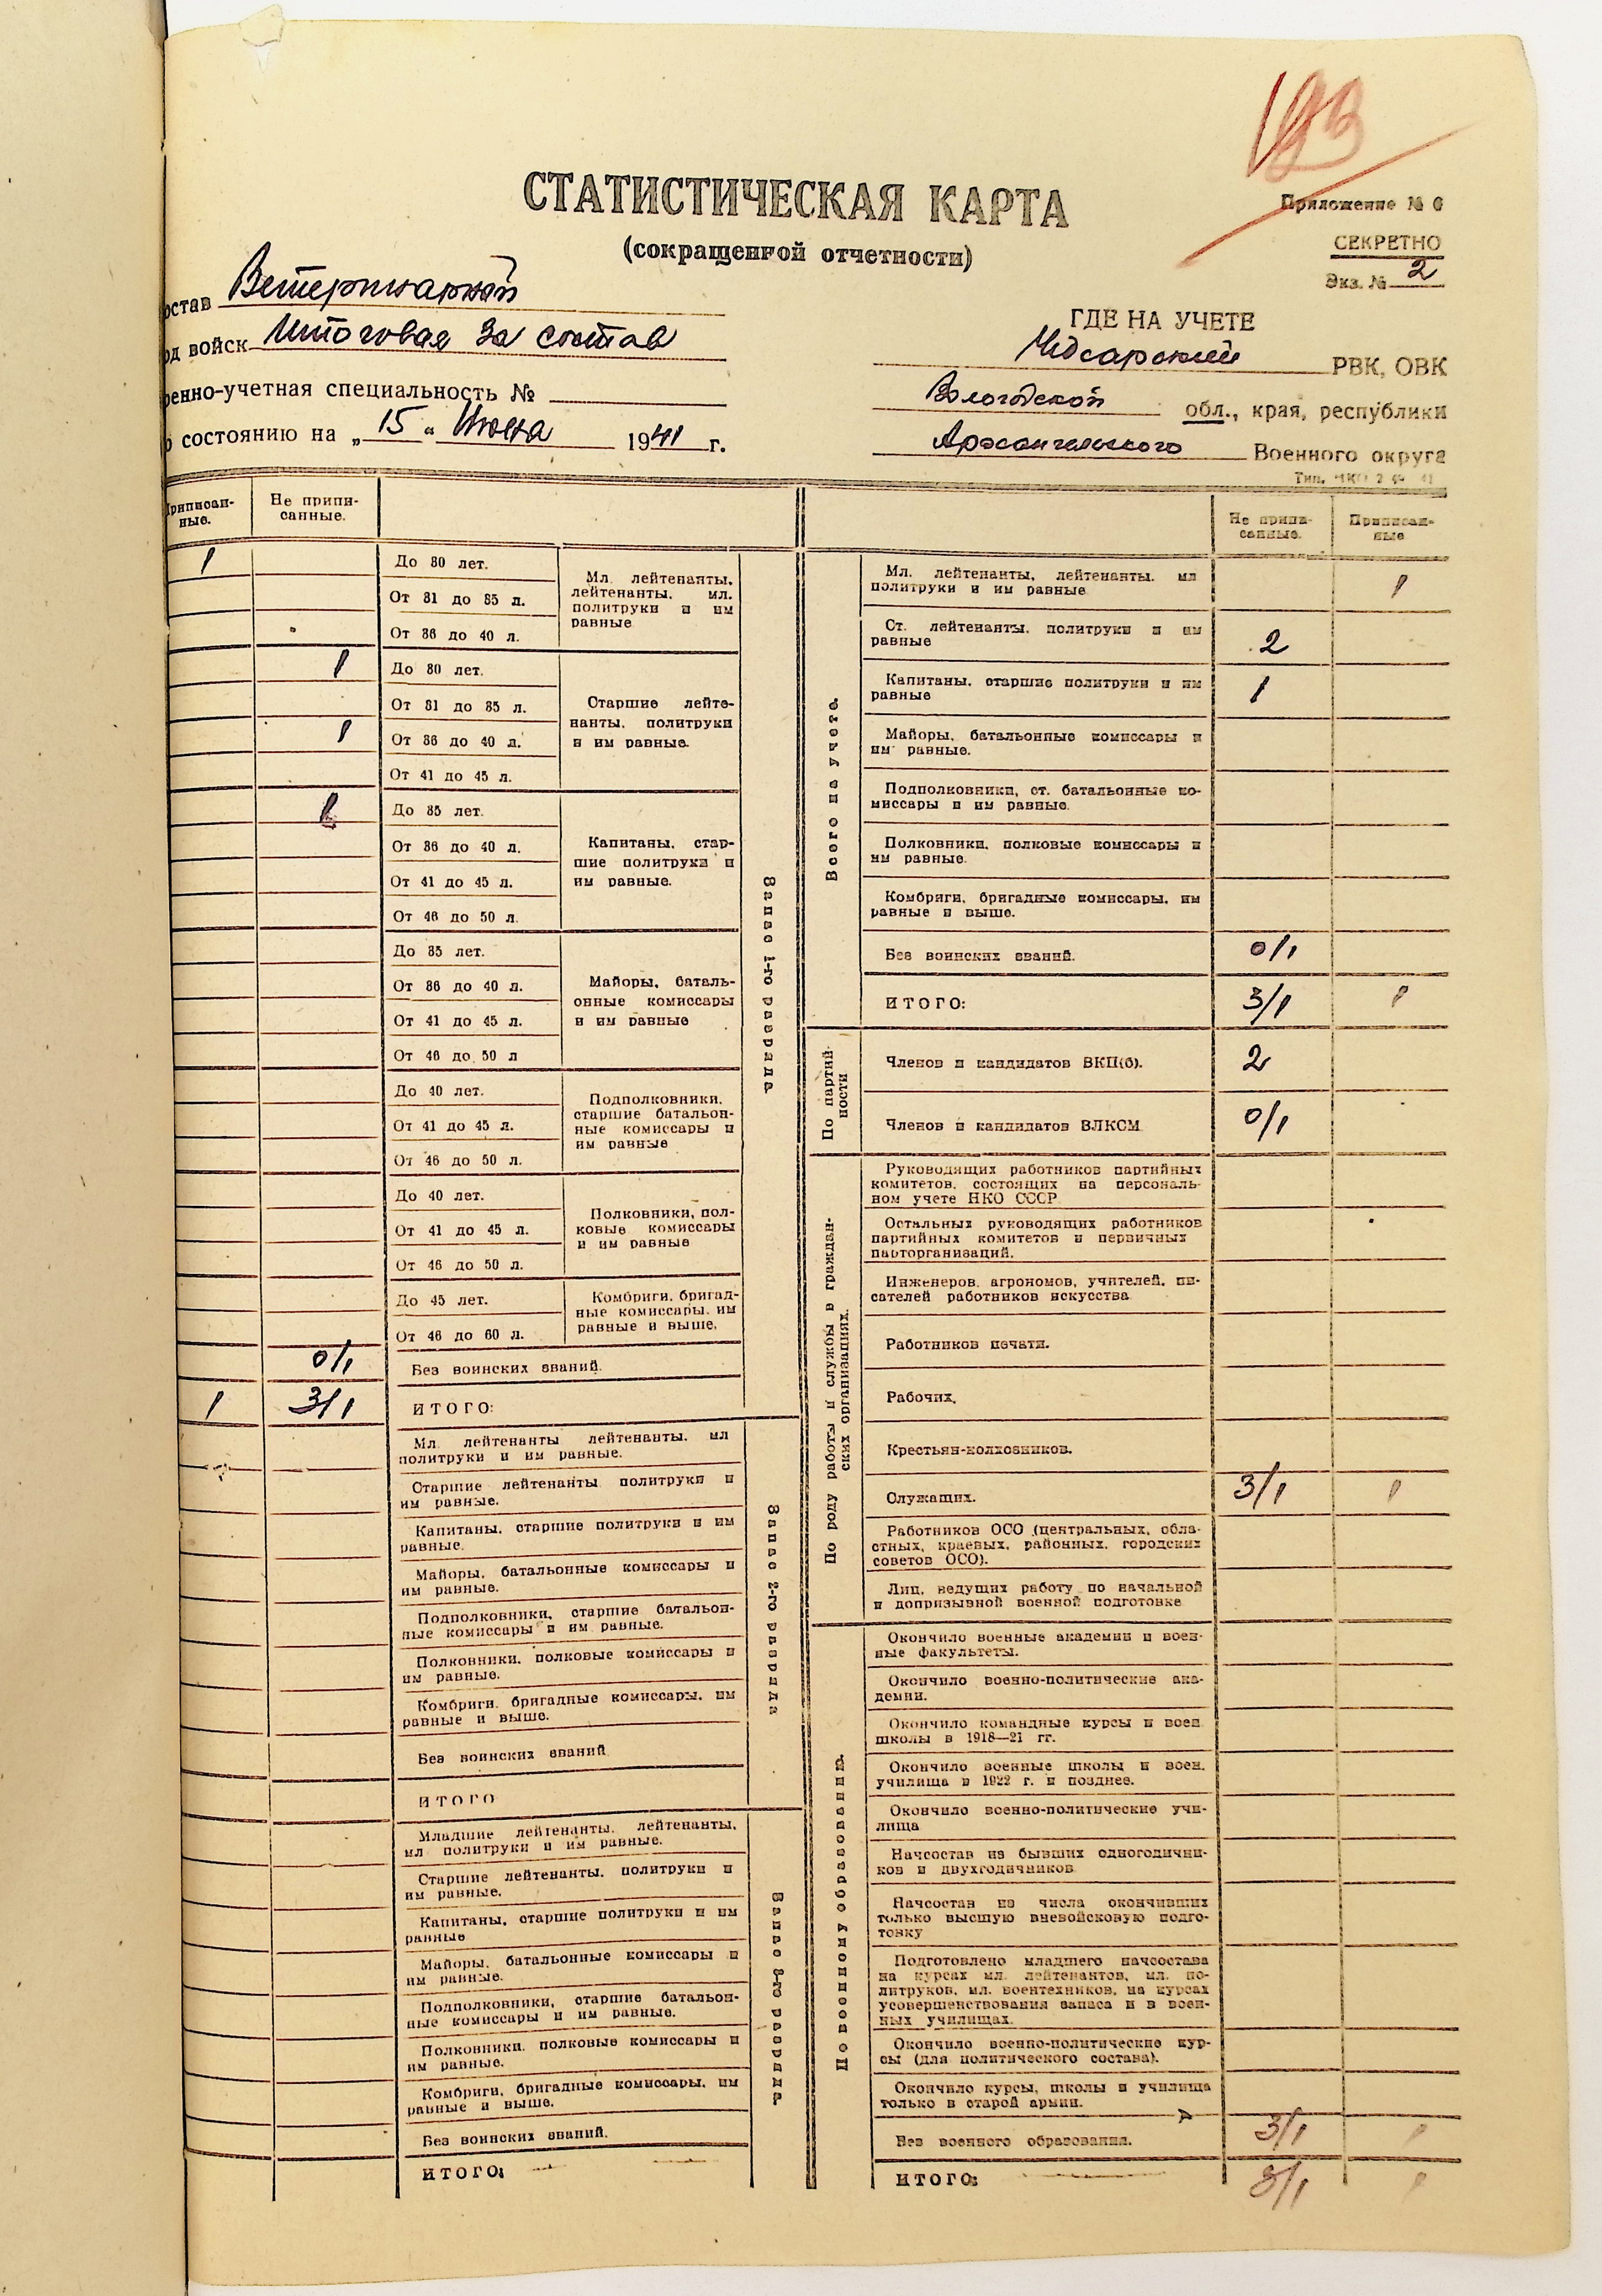 193
СТАТИСТИЧЕСКАЯ КАРТА
(сокращенной отчетности)
Приложение № 6
СЕКРЕТНО
Экз. № 2
остав Ветеринарный
од войск Итоговая за состав
енно-учетная специальность №
о состоянию на „15“ Июня 1941 г.
ГДЕ НА УЧЕТЕ
РВК, ОВК
Вологодской обл., края, республики
Архангельского Военного округа
Приписан-
ные.
Не припи-
санные.
1 До 30 лет.
От 31 до 35 л.
От 36 до 40 л.
Мл. лейтенанты,
лейтенанты, мл.
политруки и им
равные
1 До 30 лет.
От 31 до 35 л.
1 От 36 до 40 л.
От 41 до 45 л.
Старшие лейте-
нанты, политруки
и им равные.
1 До 35 лет.
От 36 до 40 л.
От 41 до 45 л.
От 46 до 50 л.
Капитаны, стар-
шие политруки и
им равные.
До 35 лет.
От 36 до 40 л.
От 41 до 45 л.
От 46 до 50 л
Майоры, баталь-
онные комиссары
и им равные
До 40 лет.
От 41 до 45 л.
От 46 до 50 л.
Подполковники,
старшие батальон-
ные комиссары и
им равные
До 40 лет.
От 41 до 45 л.
От 46 до 50 л.
Полковники, пол-
ковые комиссары
и им равные
До 45 лет.
От 46 до 60 л.
Комбриги, бригад-
ные комиссары, им
равные и выше.
0/1 Без воинских званий.
1 3/1 ИТОГО:
Запас 1-го разряда.
Мл. лейтенанты лейтенанты, мл
политруки и им равные.
Старшие лейтенанты политруки и
им равные.
Капитаны, старшие политруки и им
равные.
Майоры, батальонные комиссары и
им равные.
Подполковники, старшие батальон-
ные комиссары и им равные.
Полковники, полковые комиссары и
им равные.
Комбриги, бригадные комиссары, им
равные и выше.
Без воинских званий
ИТОГО
Запас 2-го разряда
Младшие лейтенанты, лейтенанты,
мл политруки и им равные.
Старшие лейтенанты, политруки и
им равные.
Капитаны, старшие политруки и им
равные
Майоры, батальонные комиссары и
им равные.
Подполковники, старшие батальон-
ные комиссары и им равные.
Полковники, полковые комиссары и
им равные.
Комбриги, бригадные комиссары, им
равные и выше.
Без воинских званий.
ИТОГО:
Запас 3-го разряда.
Не припи-
санные.
Приписан-
ные
Всего на учете.
Мл. лейтенанты, лейтенанты, мл
политруки и им равные 1
Ст. лейтенанты, политруки и им
равные 2
Капитаны, старшие политруки и им
равные 1
Майоры, батальонные комиссары и
им равные.
Подполковники, ст. батальонные ко-
миссары и им равные.
Полковники, полковые комиссары и
им равные.
Комбриги, бригадные комиссары, им
равные и выше.
Без воинских званий. 0/1
ИТОГО: 3/1 1
По партий-
ности
Членов и кандидатов ВКП(б). 2
Членов и кандидатов ВЛКСМ 0/1
По роду работы и службы в граждан-
ских организациях.
Руководящих работников партийных
комитетов, состоящих на персональ-
ном учете НКО СССР
Остальных руководящих работников
партийных комитетов и первичных
парторганизаций.
Инженеров, агрономов, учителей, пи-
сателей работников искусства
Работников печати.
Рабочих,
Крестьян-колхозников.
Служащих. 3/1 1
Работников ОСО (центральных, обла-
стных, краевых, районных, городских
советов ОСО).
Лиц, ведущих работу по начальной
и допризывной военной подготовке
По военному образованию.
Окончило военные академии и воен-
ные факультеты.
Окончило военно-политические ака-
демии.
Окончило командные курсы и воен
школы в 1918—21 гг.
Окончило военные школы и воен.
училища в 1922 г. и позднее.
Окончило военно-политические учи-
лища
Начсостав из бывших одногодични-
ков и двухгодичников
Начсостав из числа окончивших
только высшую вневойсковую подго-
товку
Подготовлено младшего начсостава
на курсах мл. лейтенантов, мл. по-
литруков, мл. воентехников, на курсах
усовершенствования запаса и в воен-
ных училищах.
Окончило военно-политические кур-
сы (для политического состава).
Окончило курсы, школы и училища
только в старой армии.
Без военного образования. 3/1 1
ИТОГО: 3/1 1